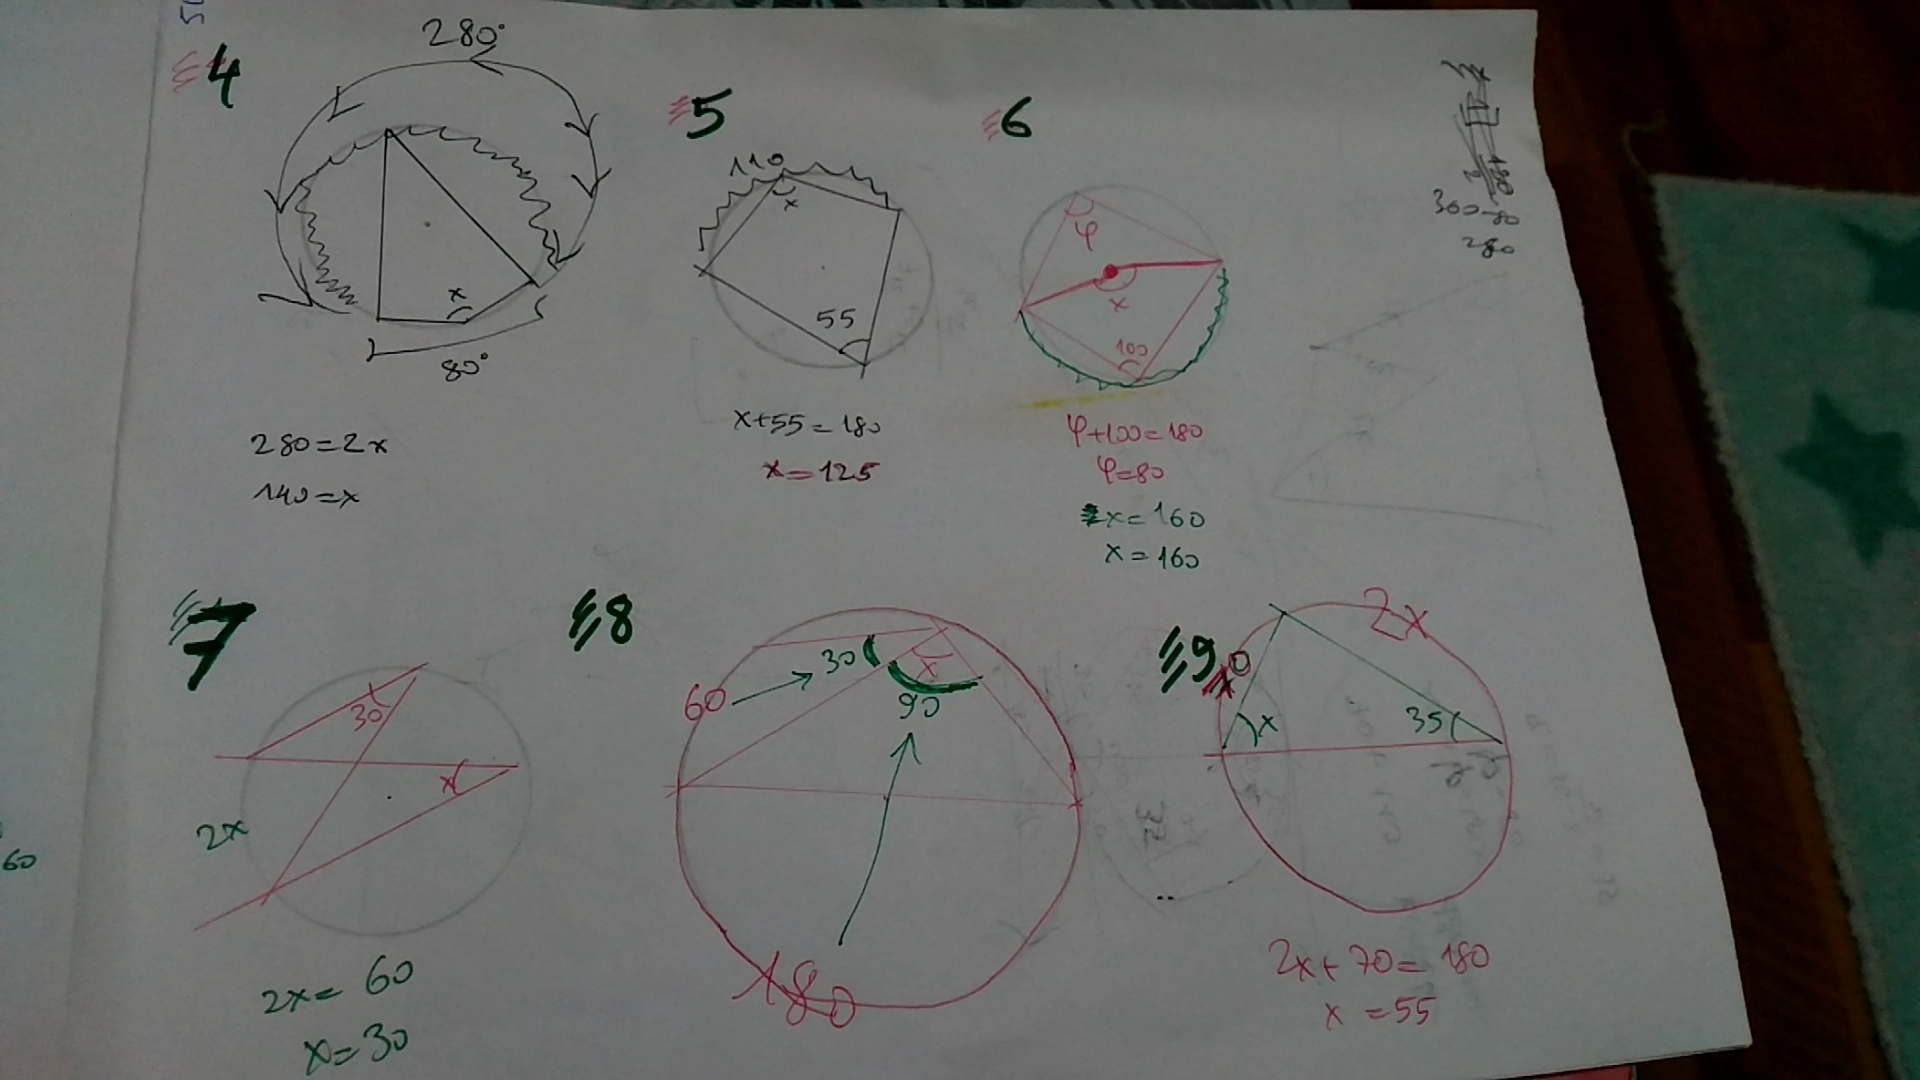 280°
4
x
80°
280=2x
140=x
5
110
x
55
x+55=180
x=125
6
φ
x
100
φ+100=180
φ=80
x=160
x=160
360-80
280
7
30
x
2x
2x=60
x=30
60
8
60
30
x
90
180
9
2x
x
35
2x+70=180
x=55
32